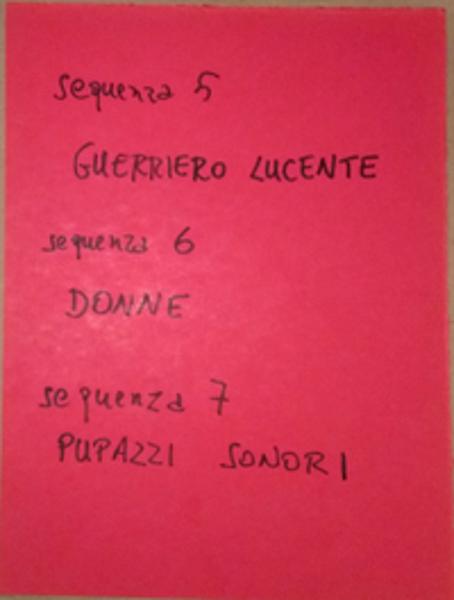 sequenza 5
GUERRIERO LUCENTE
sequenza 6
DONNE
sequenza 7
PUPAZZI SONORI